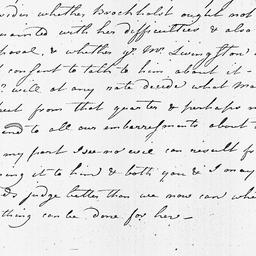 sider whether Brockholst ought not
uainted with her difficulties & also
posal, & whether yr. Mr. Livingston
consent to talk to him about it –
? will at any rate decide what ma
pect from that quarter & perhaps m
end to all our embarrassments about
my part I see no evil can result fr
ing it to him & both you & I may
ds judge better than we now can whe
thing can be done for her –